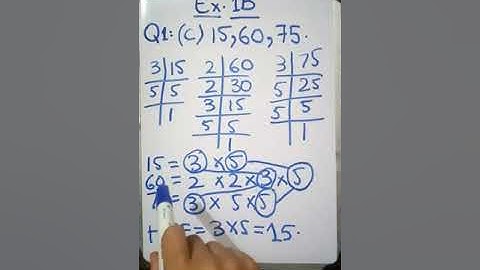 Ex. 1B
Q1:(c) 15,60,75.
3|15 2|60 3|75
5|5 2|30 5|25
1 3|15 5|5
5|5 1
1
15 = 3 × 5
60 = 2 × 2 × 3 × 5
= 3 × 5 × 5
= 3×5=15.